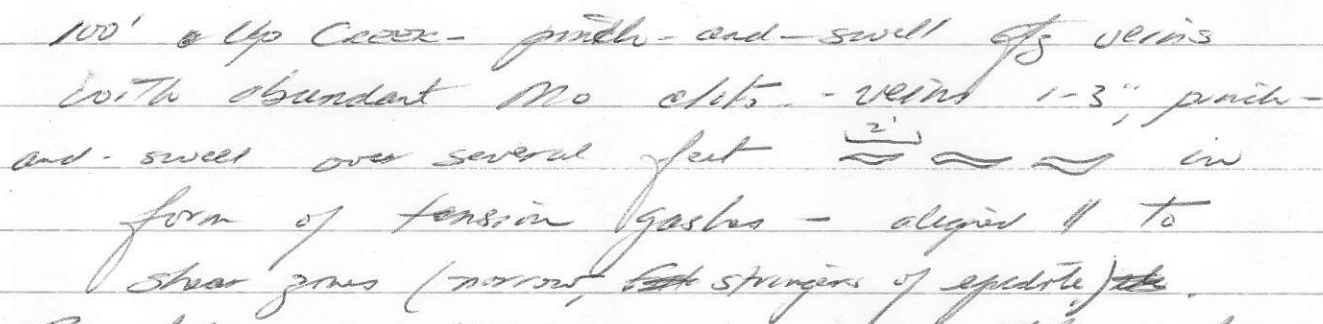 100' Up Creek - pinch-and-swell qtz veins
with abundant Mo clots - veins 1-3", pinch-
and-swell over several feet 2' in
form of tension gashes - aligned // to
shear zones (narrow, stringers of epidote).